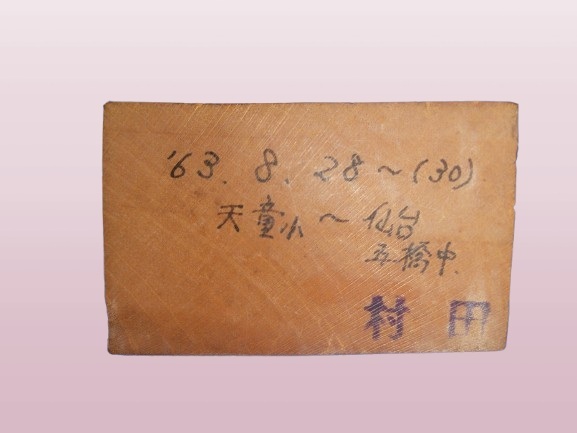 '63.8.28~(30)
天童小~仙台
五橋中.
村田